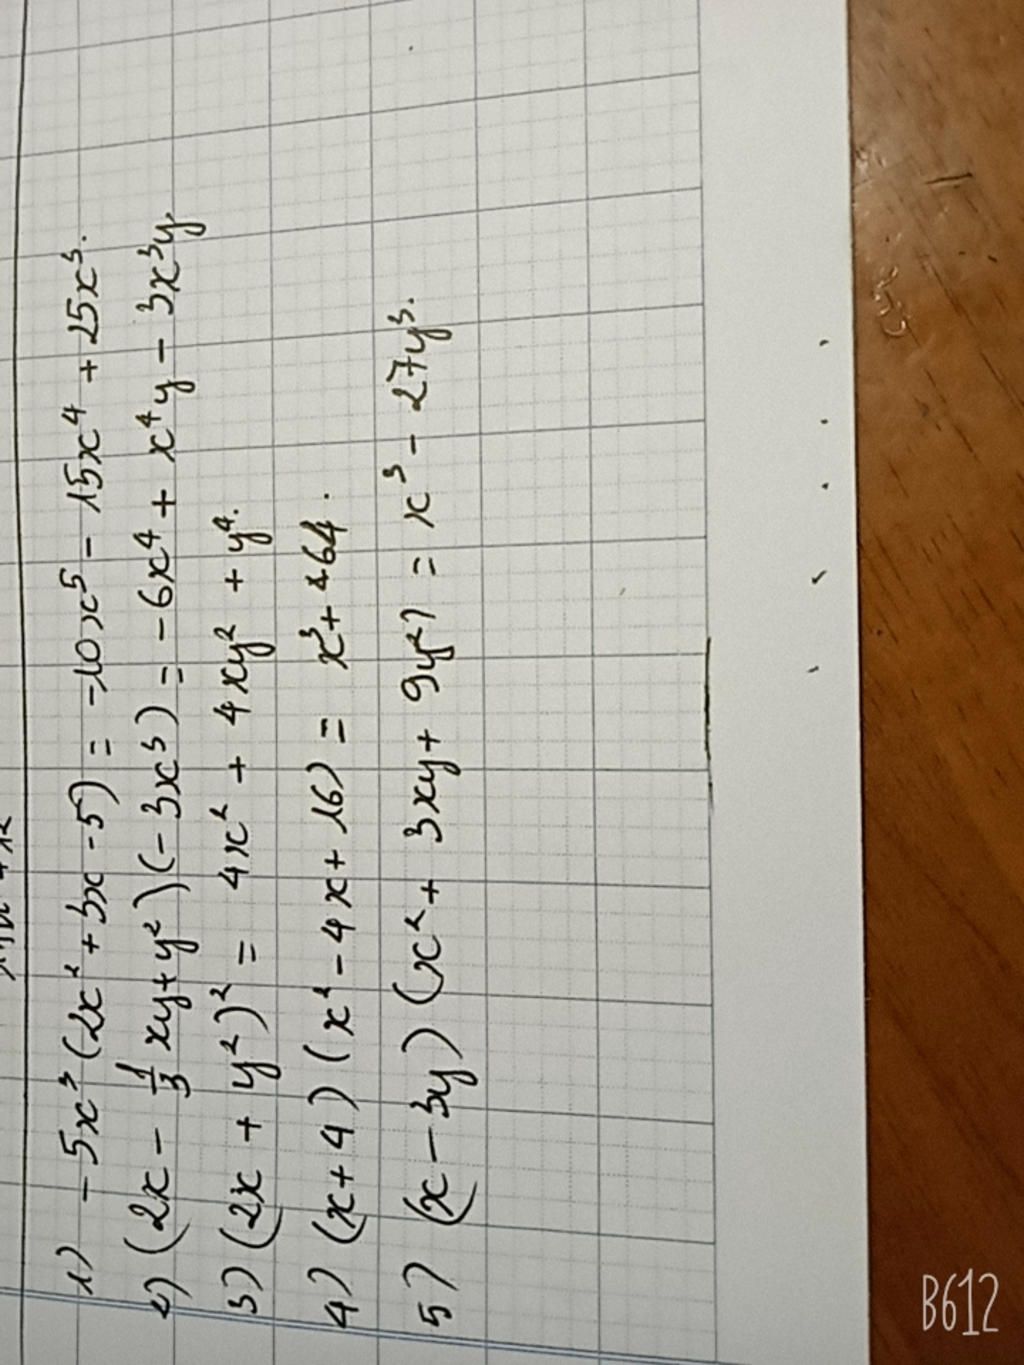 1) -5x³(2x²+3x-5) = -10x⁵ - 15x⁴ + 25x³.
2) (2x - 1/3 xy+y²)(-3x³) = -6x⁴ + x⁴y - 3x³y
3) (2x + y²)² = 4x² + 4xy² + y⁴.
4) (x+4)(x²-4x+16) = x³+64.
5) (x-3y)(x²+3xy+9y²) = x³ - 27y³.
B612